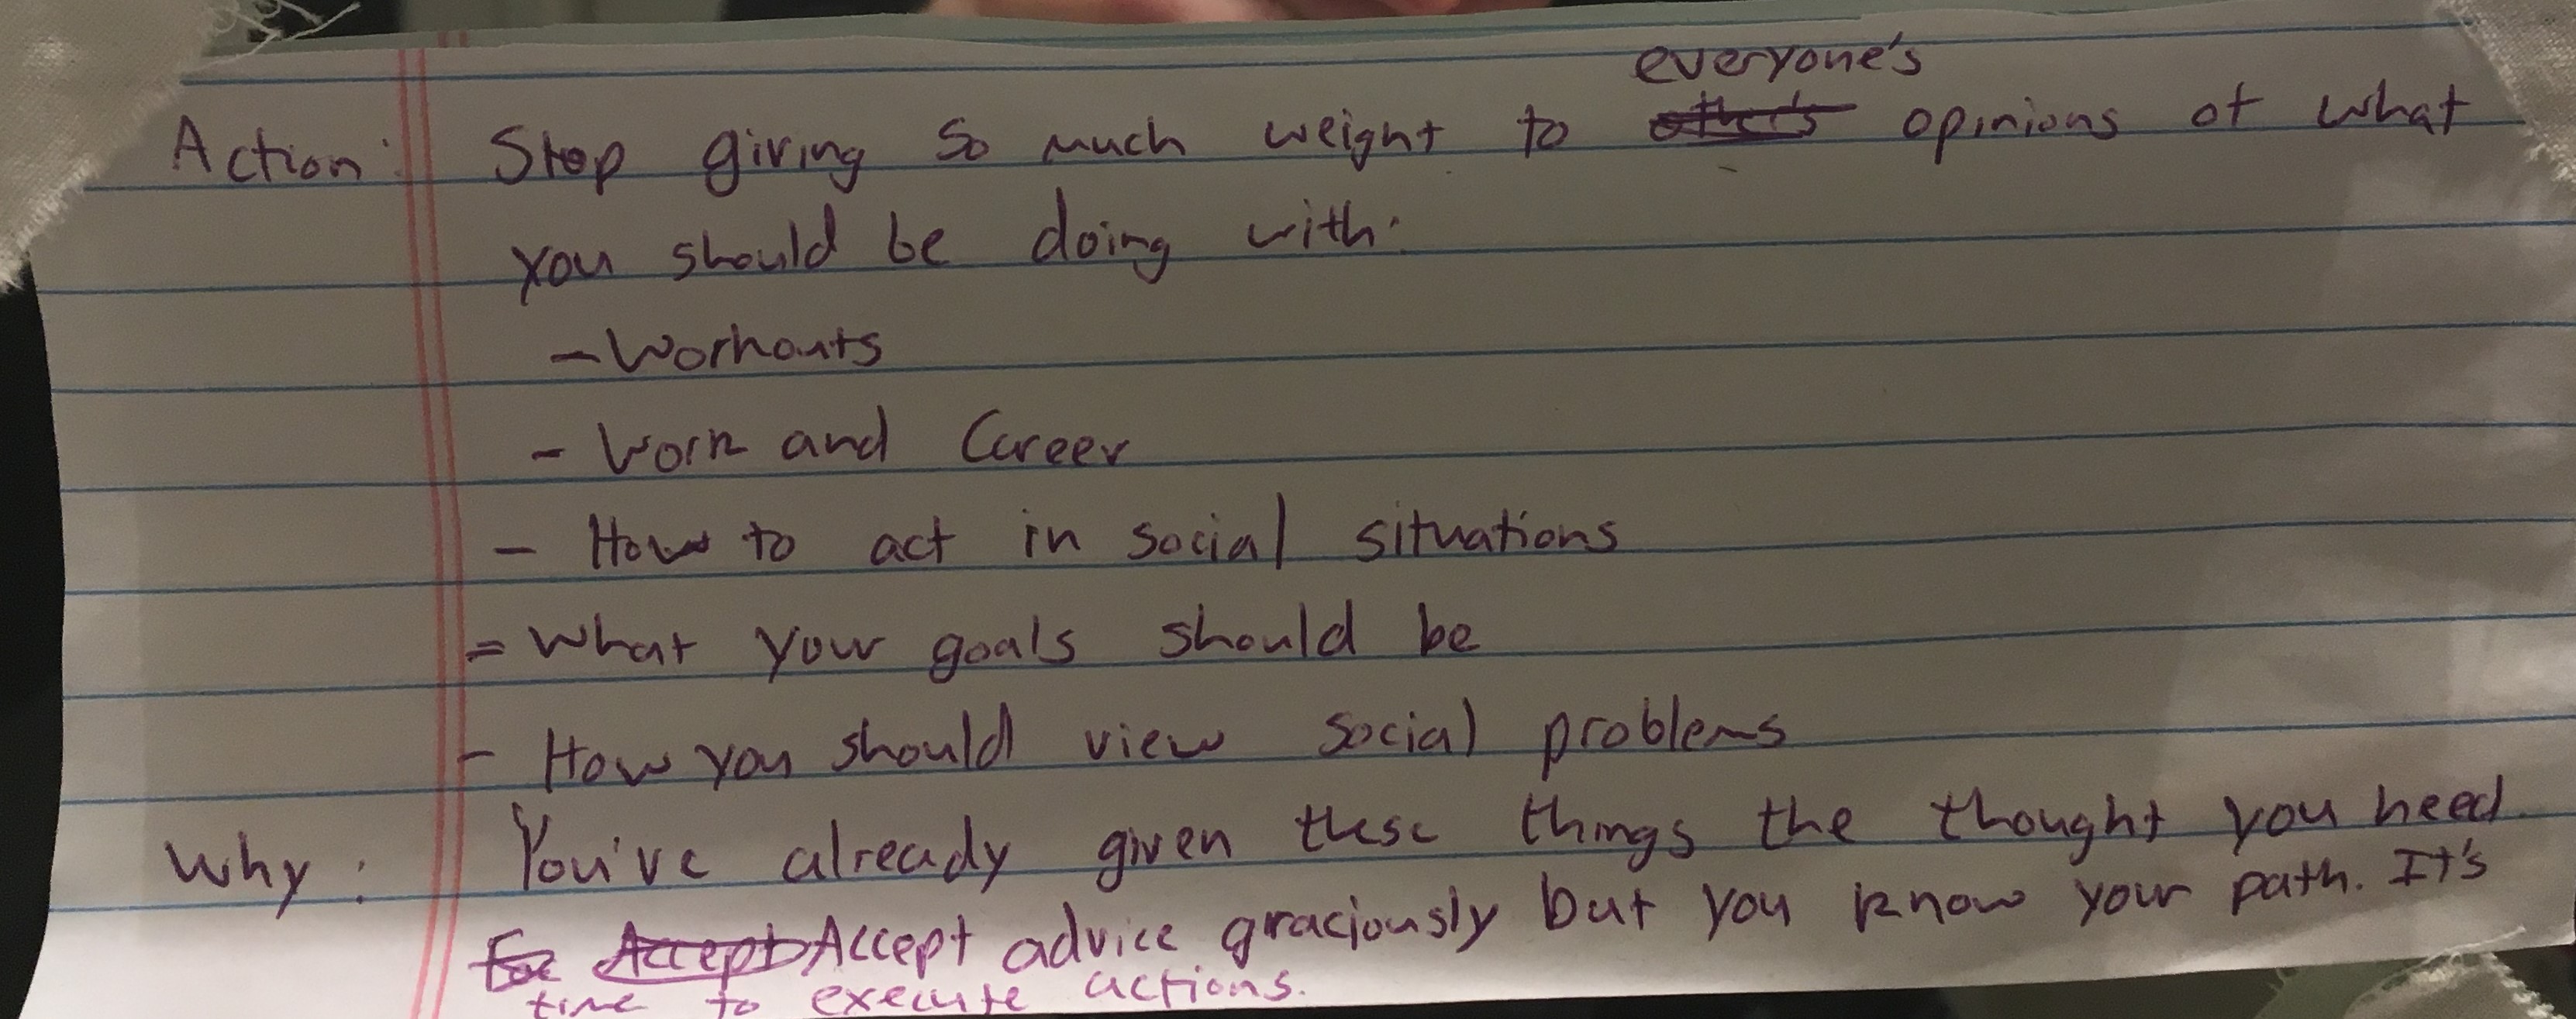 everyone's
Action: Stop giving so much weight to other's opinions of what
you should be doing with:
- Workouts
- Work and Career
- How to act in social situations
= What your goals should be
- How you should view social problems
Why: You've already given these things the thought you need.
For Accept Accept advice graciously but you know your path. It's
time to execute actions.